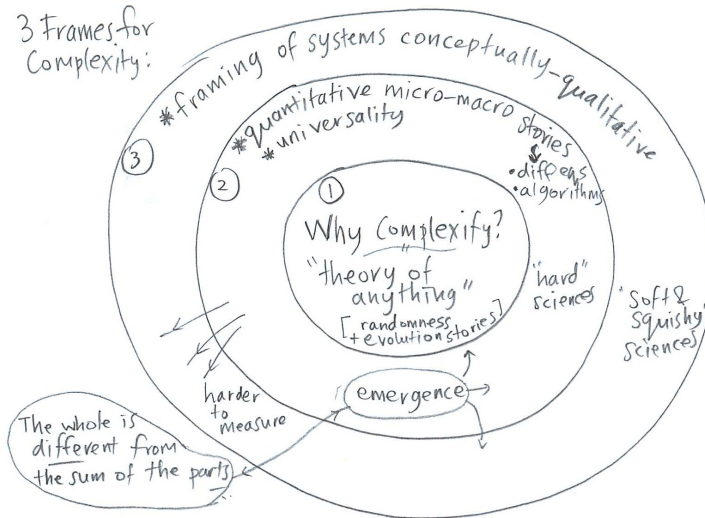 3 Frames for
Complexity:
*framing of systems conceptually-qualitative
*quantitative micro-macro stories
*universality
•diff eqs
•algorithms
3
2
1
Why Complexify?
"theory of
anything"
[randomness
+ evolution stories]
"hard"
sciences
"soft &
squishy"
sciences
harder
to
measure
emergence
The whole is
different from
the sum of the parts